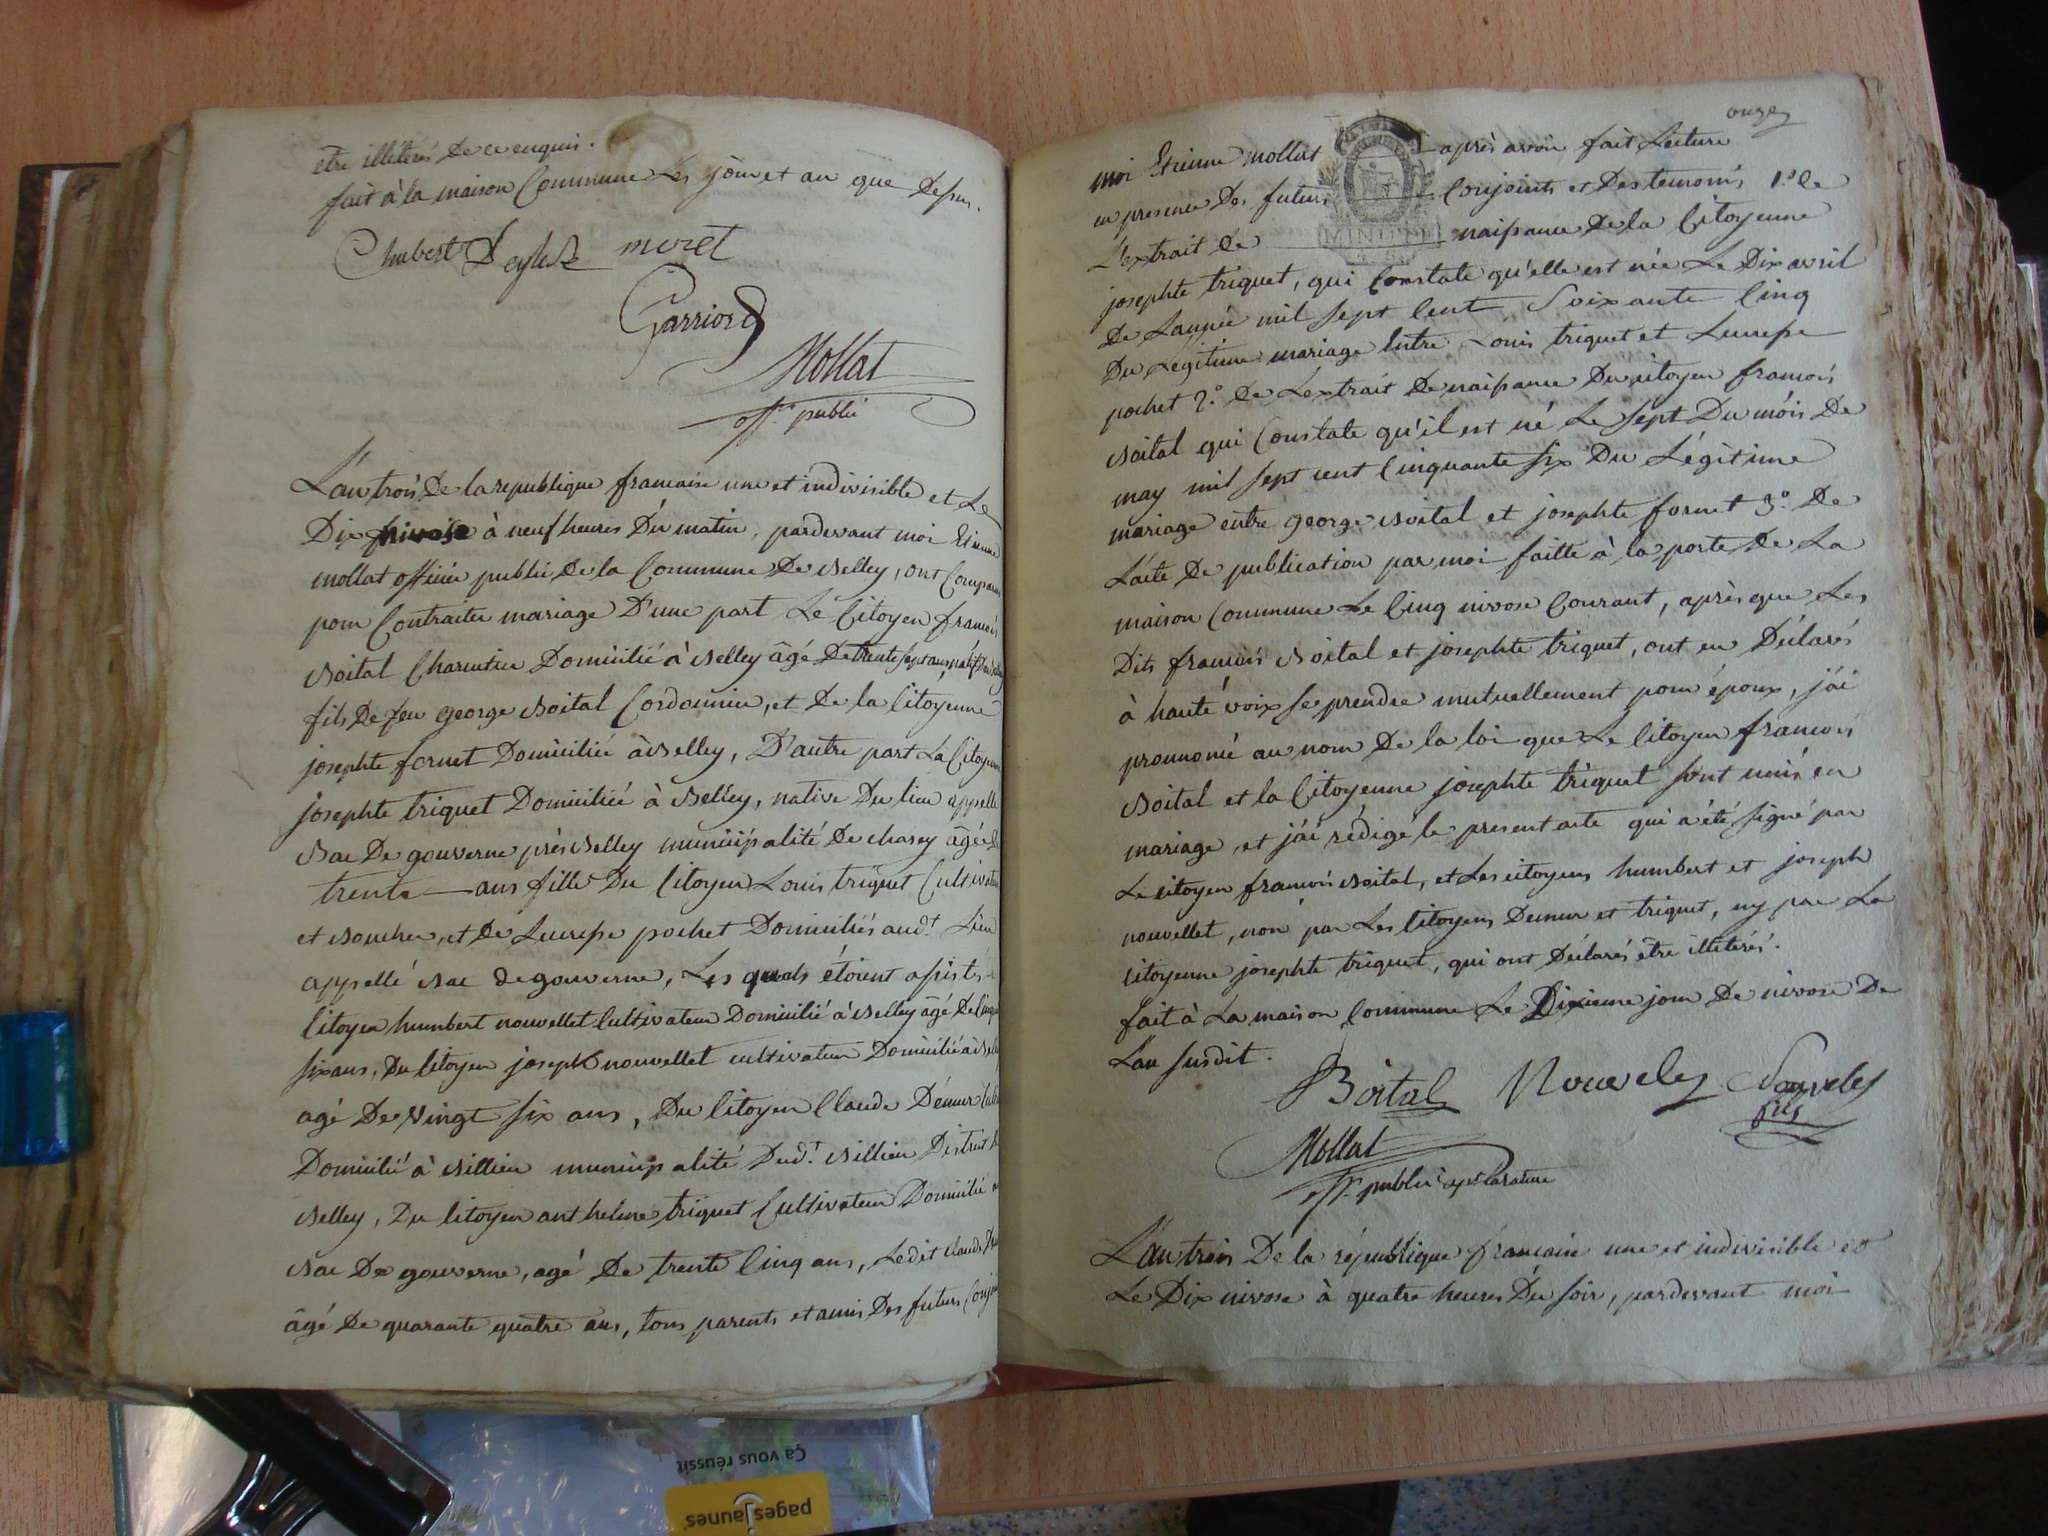 etre illitérés De ce enquis.
fait à la maison Commune Les jour et an que Dessus.
Chubert
moret
Garriord
Mollat
off. public
L'an trois De la republique francaise une et indivisible et Le
Dix nivose à neuf heures Du matin, pardevant moi Etienne
mollat officier public De la Commune De Belley, ont Comparu
pour Contracter mariage D'une part Le Citoyen francois
Boital Charcutier Domicilié à Belley âgé De trente sept ans
fils De feu george Boital Cordonnier, et De la Citoyenne
josephte fornet Domiciliée à Belley, D'autre part La Citoyenne
josephte triquet Domiciliée à Belley, native Du lieu appellé
Bac De gouverne près Belley municipalité De chasey âgée de
trente ans fille Du Citoyen Louis triquet Cultivateur
et Boucher, et De Lucresse pochet Domiciliés aud.t Lieu
appellé Bac De gouverne, Les quels étoient assistés
Citoyen humbert nouvellet Cultivateur Domicilié à Belley âgé De
six ans, Du Citoyen joseph nouvellet cultivateur Domicilié à
agé De Vingt six ans, Du Citoyen Claude Démeur
Domicilié à Billieu municipalité Dud.t Billieu District
Belley, Du Citoyen anthelme triquet Cultivateur Domicilié
Bac De gouverne, agé De trente Cinq ans, Ledit Claude
âgé De quarante quatre ans, tous parents et amis Des futurs
onze
moi Etienne mollat après avoir fait Lecture
en presence Des futurs Conjoints et Des temoins, 1.º De
L'extrait De naissance De la Citoyenne
MINUTE
josephte triquet, qui Constate qu'elle est née Le Dix avril
De L'année mil sept Cent Soixante Cinq
Du Légitime mariage Entre Louis triquet et Lucresse
pochet 2.º De L'extrait De naissance Du citoyen francois
Boital qui Constate qu'il est né Le sept Du mois De
may mil sept cent Cinquante six Du Légitime
mariage entre george Boital et josephte fornet 3.º De
L'acte De publication par moi faitte à la porte De La
maison Commune Le Cinq nivose Courant, après que Les
Dits francois Boital et josephte triquet, ont eu Déclaré
à haute voix se prendre mutuellement pour époux, j'ai
prononcé au nom De la loi que Le Citoyen francois
Boital et la Citoyenne josephte triquet sont unis en
mariage, et j'ai rédigé le present acte qui a été signé par
Le citoyen francois Boital, et Les citoyens humbert et joseph
nouvellet, non par Les Citoyens Demeur et triquet, ny par La
Citoyenne josephte triquet, qui ont Déclarés être illiterés.
fait à La maison Commune Le Dixieme jour De nivose De
L'an susdit.
Boital Nouveley Nouveley
fils
Mollat
off. public
L'an trois De la république francaise une et indivisible et
Le Dix nivose à quatre heures Du soir, pardevant moi
Ça vous réussit
pagesjaunes